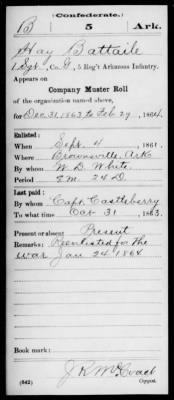 (Confederate.)
B 5 Ark.
Hay Battaile
1 Sgt, Co. G, 5 Reg't Arkansas Infantry.
Appears on
Company Muster Roll
of the organization named above,
for Dec 31, 1863 to Feb 29, 1864.
Enlisted:
When Sept. 4, 1861.
Where Brownsville, Ark
By whom W. D. White
Period 8 m. 24 D.
Last paid:
By whom Capt. Castleberry
To what time Oct 31, 1863.
Present or absent Present
Remarks: Reenlisted for the
war Jan 24 1864
Book mark:
(642) Copyist.